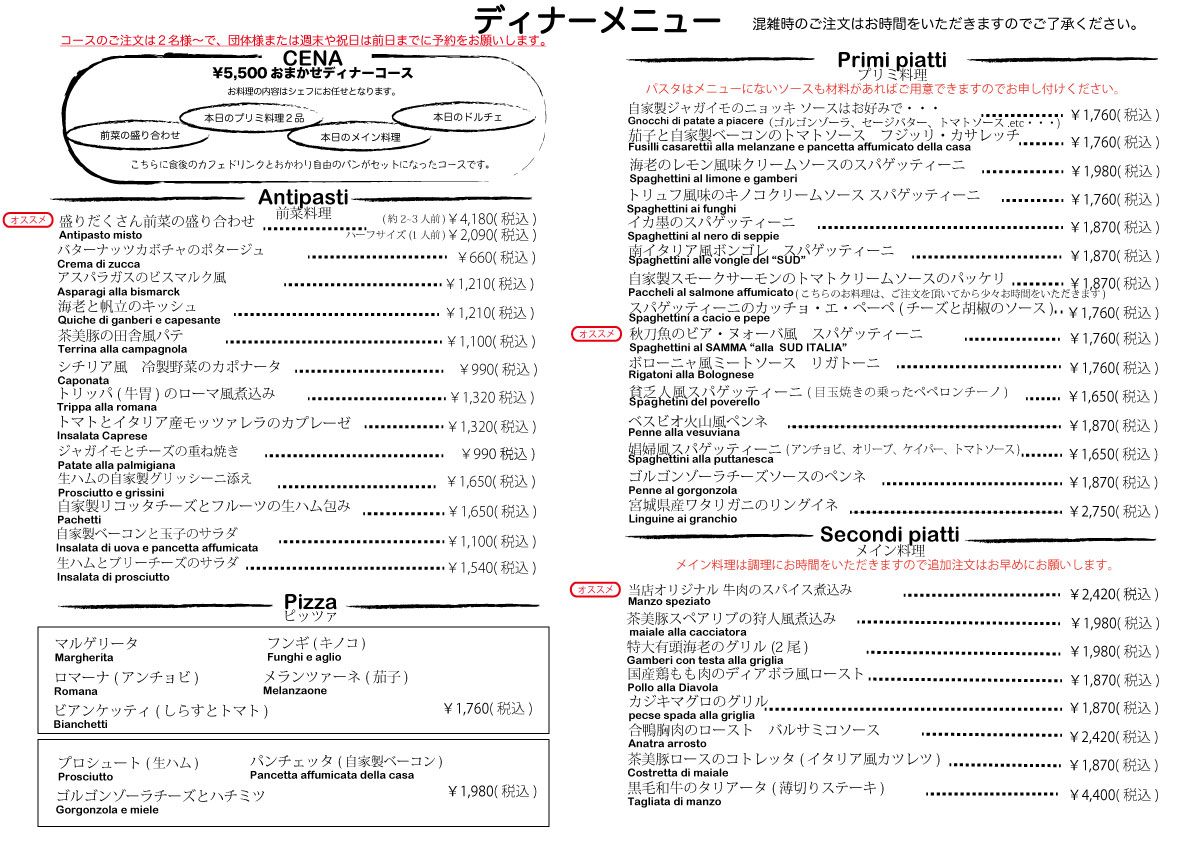 ディナーメニュー
混雑時のご注文はお時間をいただきますのでご了承ください。
コースのご注文は２名様〜で、団体様または週末や祝日は前日までに予約をお願いします。
CENA
¥5,500 おまかせディナーコース
お料理の内容はシェフにお任せとなります。
前菜の盛り合わせ
本日のプリミ料理２品
本日のメイン料理
本日のドルチェ
こちらに食後のカフェドリンクとおかわり自由のパンがセットになったコースです。
Antipasti
前菜料理
オススメ
盛りだくさん前菜の盛り合わせ (約 2-3 人前) ¥ 4,180( 税込 )
Antipasto misto ハーフサイズ (1 人前) ¥ 2,090( 税込 )
バターナッツカボチャのポタージュ ¥ 660( 税込 )
Crema di zucca
アスパラガスのビスマルク風 ¥ 1,210( 税込 )
Asparagi alla bismarck
海老と帆立のキッシュ ¥ 1,210( 税込 )
Quiche di ganberi e capesante
茶美豚の田舎風パテ ¥ 1,100( 税込 )
Terrina alla campagnola
シチリア風　冷製野菜のカポナータ ¥ 990( 税込 )
Caponata
トリッパ ( 牛胃 ) のローマ風煮込み ¥ 1,320 税込 )
Trippa alla romana
トマトとイタリア産モッツァレラのカプレーゼ ¥ 1,320( 税込 )
Insalata Caprese
ジャガイモとチーズの重ね焼き ¥ 990 税込 )
Patate alla palmigiana
生ハムの自家製グリッシーニ添え ¥ 1,650( 税込 )
Prosciutto e grissini
自家製リコッタチーズとフルーツの生ハム包み ¥ 1,650( 税込 )
Pachetti
自家製ベーコンと玉子のサラダ ¥ 1,100( 税込 )
Insalata di uova e pancetta affumicata
生ハムとブリーチーズのサラダ ¥ 1,540( 税込 )
Insalata di prosciutto
Pizza
ピッツァ
マルゲリータ
Margherita
フンギ ( キノコ )
Funghi e aglio
ロマーナ ( アンチョビ )
Romana
メランツァーネ ( 茄子 )
Melanzaone
ビアンケッティ ( しらすとトマト )
Bianchetti
¥ 1,760( 税込 )
プロシュート ( 生ハム )
Prosciutto
パンチェッタ ( 自家製ベーコン )
Pancetta affumicata della casa
ゴルゴンゾーラチーズとハチミツ
Gorgonzola e miele
¥ 1,980( 税込 )
Primi piatti
プリミ料理
パスタはメニューにないソースも材料があればご用意できますのでお申し付けください。
自家製ジャガイモのニョッキ ソースはお好みで・・・ ¥ 1,760( 税込 )
Gnocchi di patate a piacere (ゴルゴンゾーラ、セージバター、トマトソース .etc・・・)
茄子と自家製ベーコンのトマトソース　フジッリ・カサレッチ ¥ 1,760( 税込 )
Fusilli casarettii alla melanzane e pancetta affumicato della casa
海老のレモン風味クリームソースのスパゲッティーニ ¥ 1,980( 税込 )
Spaghettini al limone e gamberi
トリュフ風味のキノコクリームソース スパゲッティーニ ¥ 1,760( 税込 )
Spaghettini ai funghi
イカ墨のスパゲッティーニ ¥ 1,870( 税込 )
Spaghettini al nero di seppie
南イタリア風ボンゴレ　スパゲッティーニ ¥ 1,870( 税込 )
Spaghettini alle vongle del “SUD”
自家製スモークサーモンのトマトクリームソースのパッケリ ¥ 1,870( 税込 )
Paccheli al salmone affumicato ( こちらのお料理は、ご注文を頂いてから少々お時間をいただきます )
スパゲッティーニのカッチョ・エ・ペーペ ( チーズと胡椒のソース ) ¥ 1,760( 税込 )
Spaghettini a cacio e pepe
オススメ
秋刀魚のビア・ヌォーバ風　スパゲッティーニ ¥ 1,760( 税込 )
Spaghettini al SAMMA “alla SUD ITALIA”
ボローニャ風ミートソース　リガトーニ ¥ 1,760( 税込 )
Rigatoni alla Bolognese
貧乏人風スパゲッティーニ ( 目玉焼きの乗ったペペロンチーノ ) ¥ 1,650( 税込 )
Spaghetini del poverello
ベスビオ火山風ペンネ ¥ 1,870( 税込 )
Penne alla vesuviana
娼婦風スパゲッティーニ (アンチョビ、オリーブ、ケイパー、トマトソース) ¥ 1,650( 税込 )
Spaghettini alla puttanesca
ゴルゴンゾーラチーズソースのペンネ ¥ 1,870( 税込 )
Penne al gorgonzola
宮城県産ワタリガニのリングイネ ¥ 2,750( 税込 )
Linguine ai granchio
Secondi piatti
メイン料理
メイン料理は調理にお時間をいただきますので追加注文はお早めにお願いします。
オススメ
当店オリジナル 牛肉のスパイス煮込み ¥ 2,420( 税込 )
Manzo speziato
茶美豚スペアリブの狩人風煮込み ¥ 1,980( 税込 )
maiale alla cacciatora
特大有頭海老のグリル (2 尾 ) ¥ 1,980( 税込 )
Gamberi con testa alla griglia
国産鶏もも肉のディアボラ風ロースト ¥ 1,870( 税込 )
Pollo alla Diavola
カジキマグロのグリル ¥ 1,870( 税込 )
pecse spada alla griglia
合鴨胸肉のロースト　バルサミコソース ¥ 2,420( 税込 )
Anatra arrosto
茶美豚ロースのコトレッタ ( イタリア風カツレツ ) ¥ 1,870( 税込 )
Costretta di maiale
黒毛和牛のタリアータ ( 薄切りステーキ ) ¥ 4,400( 税込 )
Tagliata di manzo